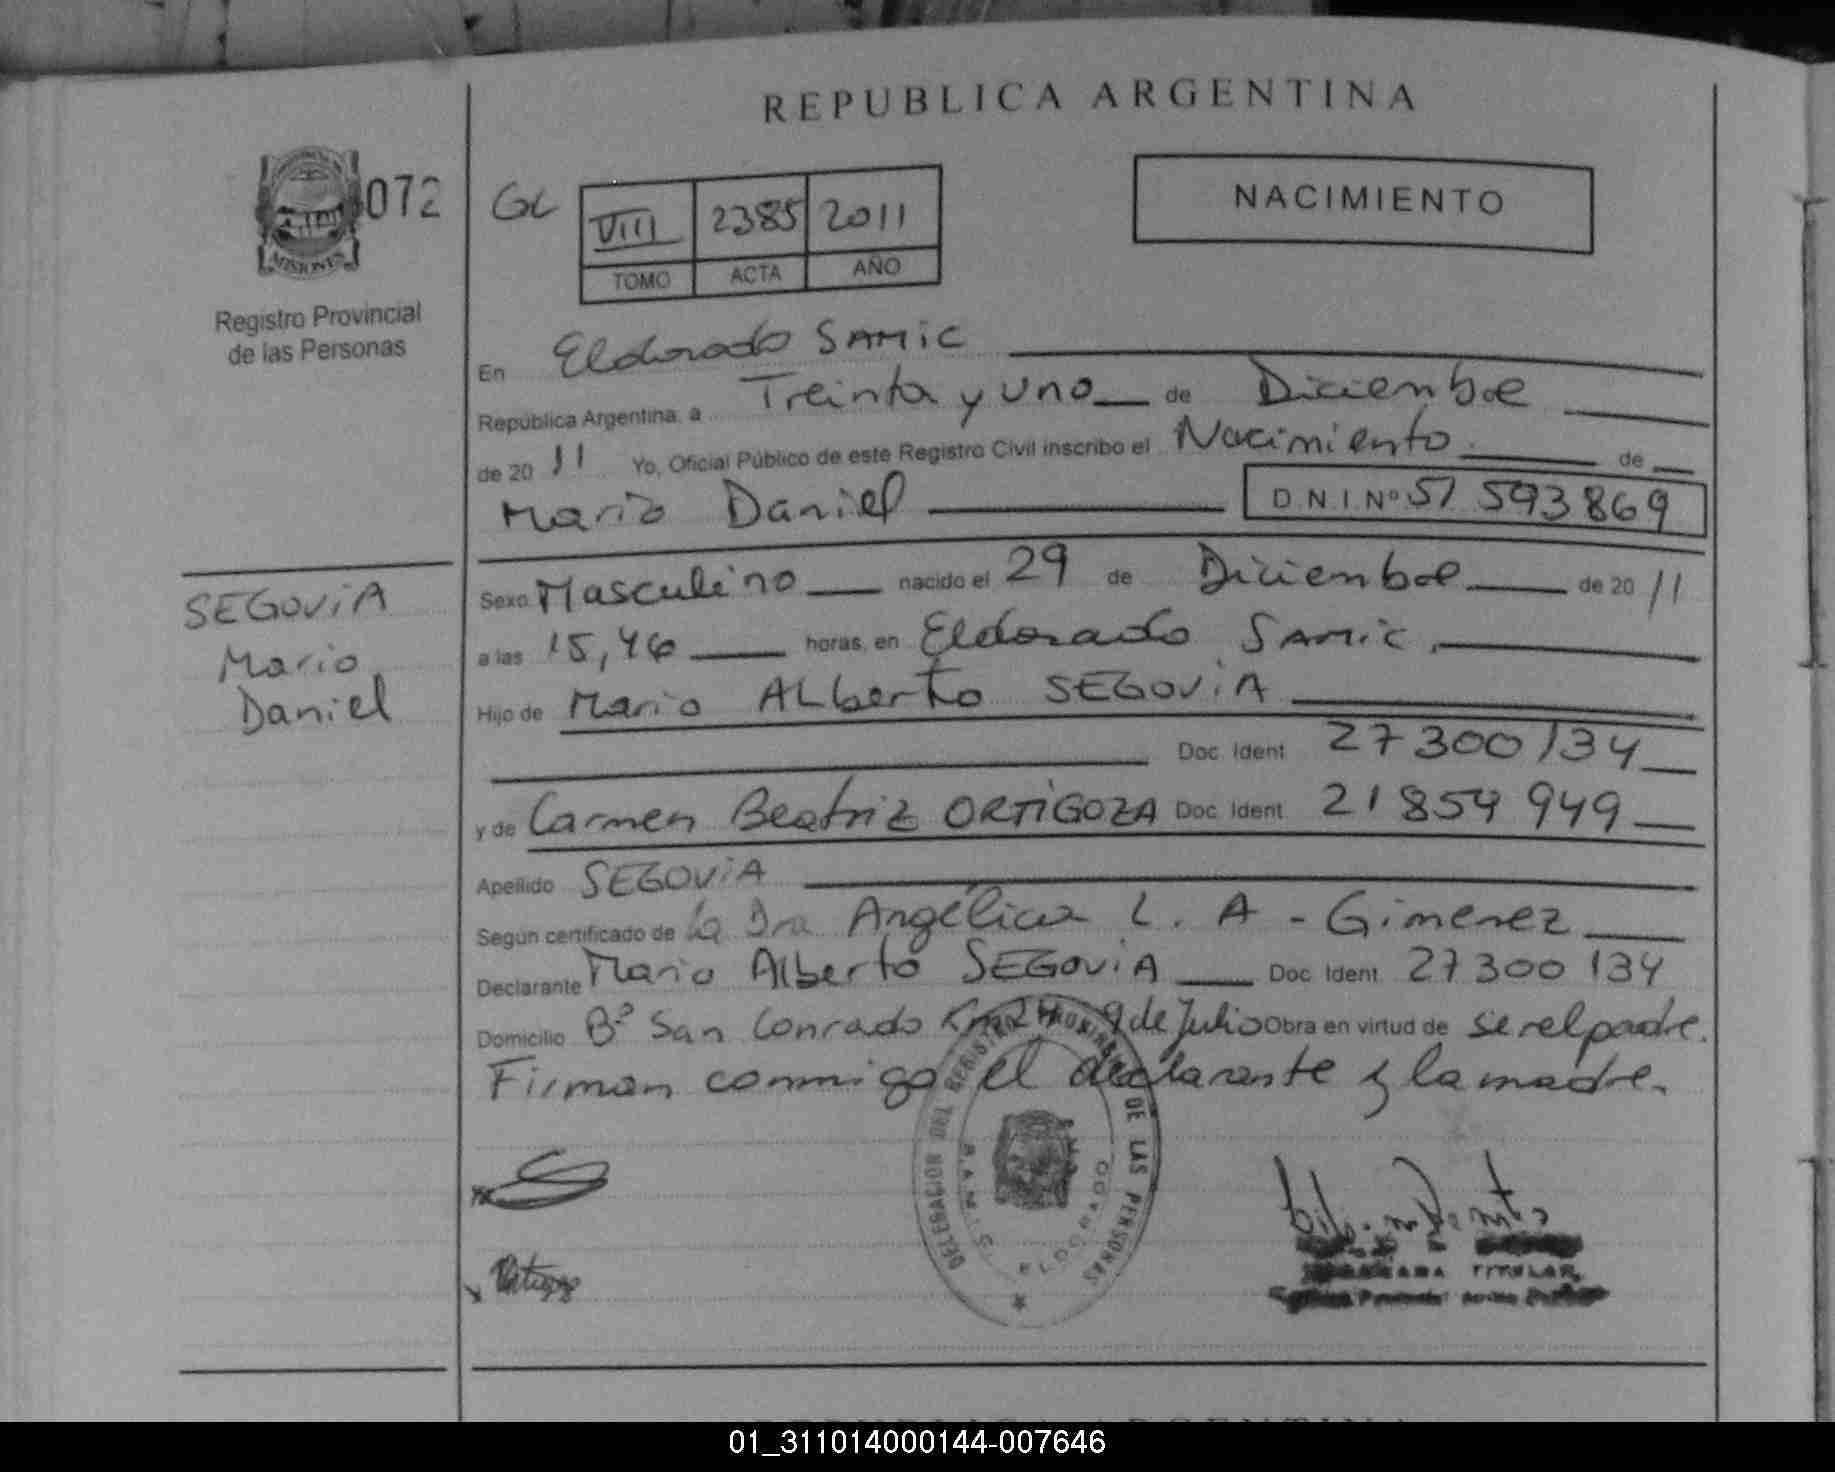 REPUBLICA ARGENTINA
MISIONES
072
GL
VIII 2385 2011
TOMO ACTA AÑO
NACIMIENTO
Registro Provincial
de las Personas
En Eldorado SAMIC
República Argentina, a Treinta y uno de Diciembre
de 2011 Yo, Oficial Público de este Registro Civil inscribo el Nacimiento de
Mario Daniel D.N.I. Nº 51 593869
SEGOVIA
Mario
Daniel
Sexo Masculino nacido el 29 de Diciembre de 2011
a las 15,46 horas, en Eldorado SAMIC.
Hijo de Mario ALberto SEGOVIA
Doc. Ident 27300134
y de Carmen Beatriz ORTIGOZA Doc. Ident 21854949
Apellido SEGOVIA
Según certificado de la Dra Angélica L. A - Gimenez
Declarante Mario Alberto SEGOVIA Doc. Ident. 27300134
Domicilio Bº San Conrado Km 24 9 de Julio Obra en virtud de ser el padre.
Firman conmigo el declarante y la madre.
DELEGACION DEL REGISTRO PROVINCIAL DE LAS PERSONAS
ELDORADO
TITULAR
01_311014000144-007646